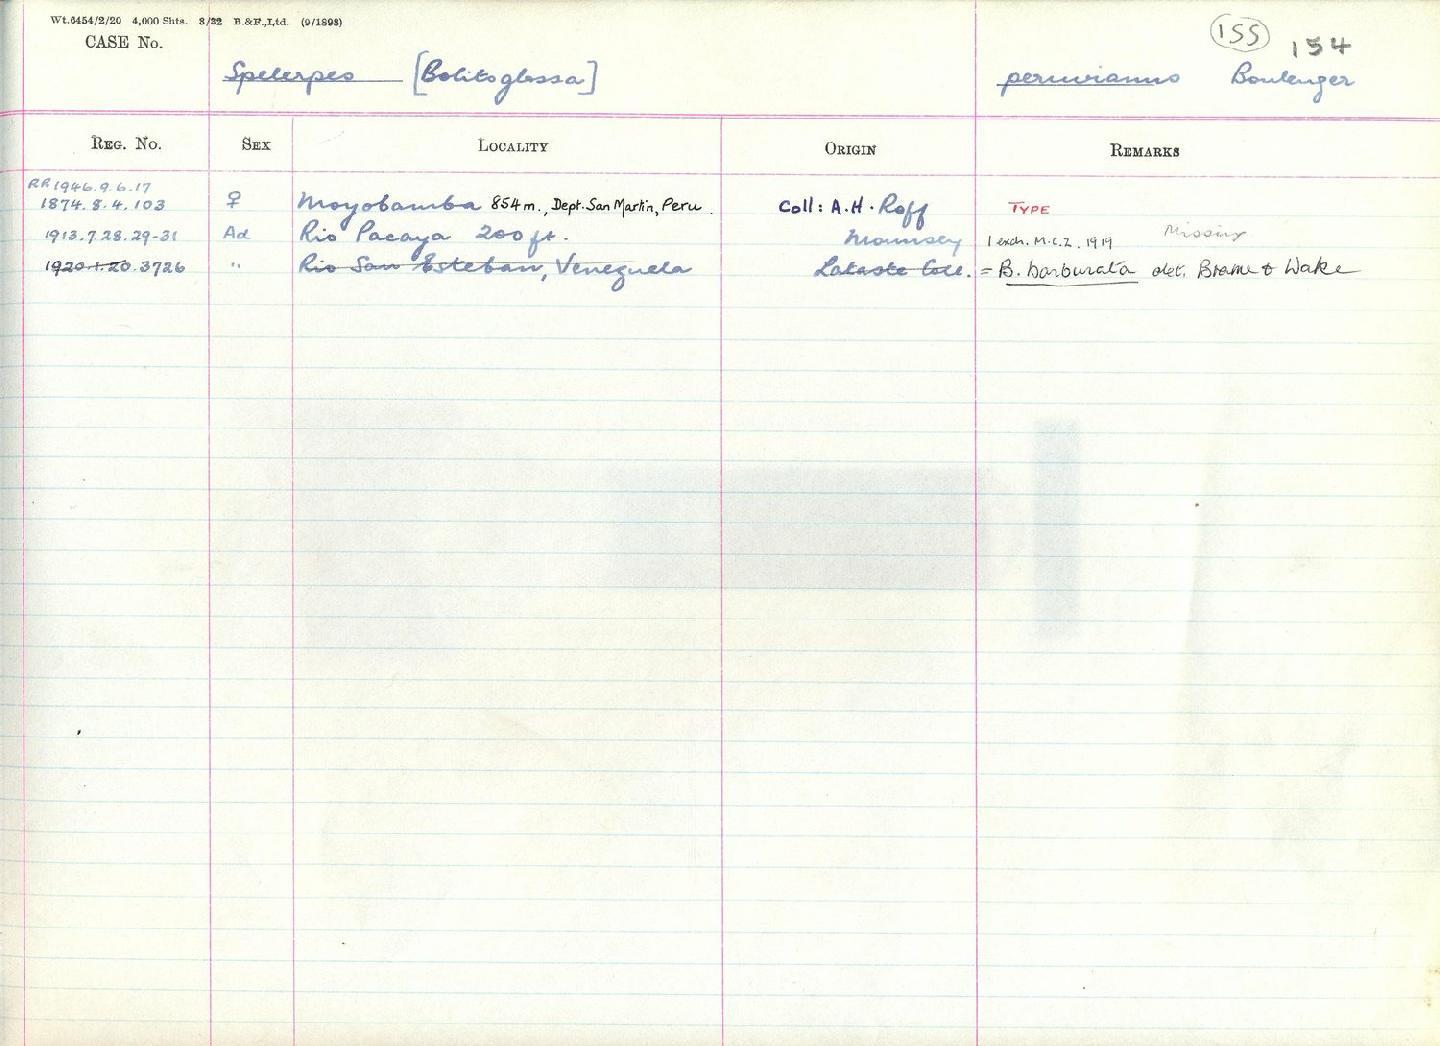 Wt.6454/2/20 4,000 Shts. 8/22 B.&F.,Ltd. (9/1898)
CASE No.
155 154
Spelerpes [Bolitoglossa] peruvianus Boulenger
Reg. No. Sex Locality Origin Remarks
RR 1946.9.6.17
1874.8.4.103 ♀ Moyobamba 854m., Dept. San Martin, Peru. Coll: A.H. Roff TYPE
1913.7.28.29-31 Ad Rio Pacaya 200 ft. Mounsey 1 exch. M.C.Z. 1919 Missing
1920.1.20.3726 " Rio San Esteban, Venezuela Lataste Coll. = B. borburata det. Brame & Wake